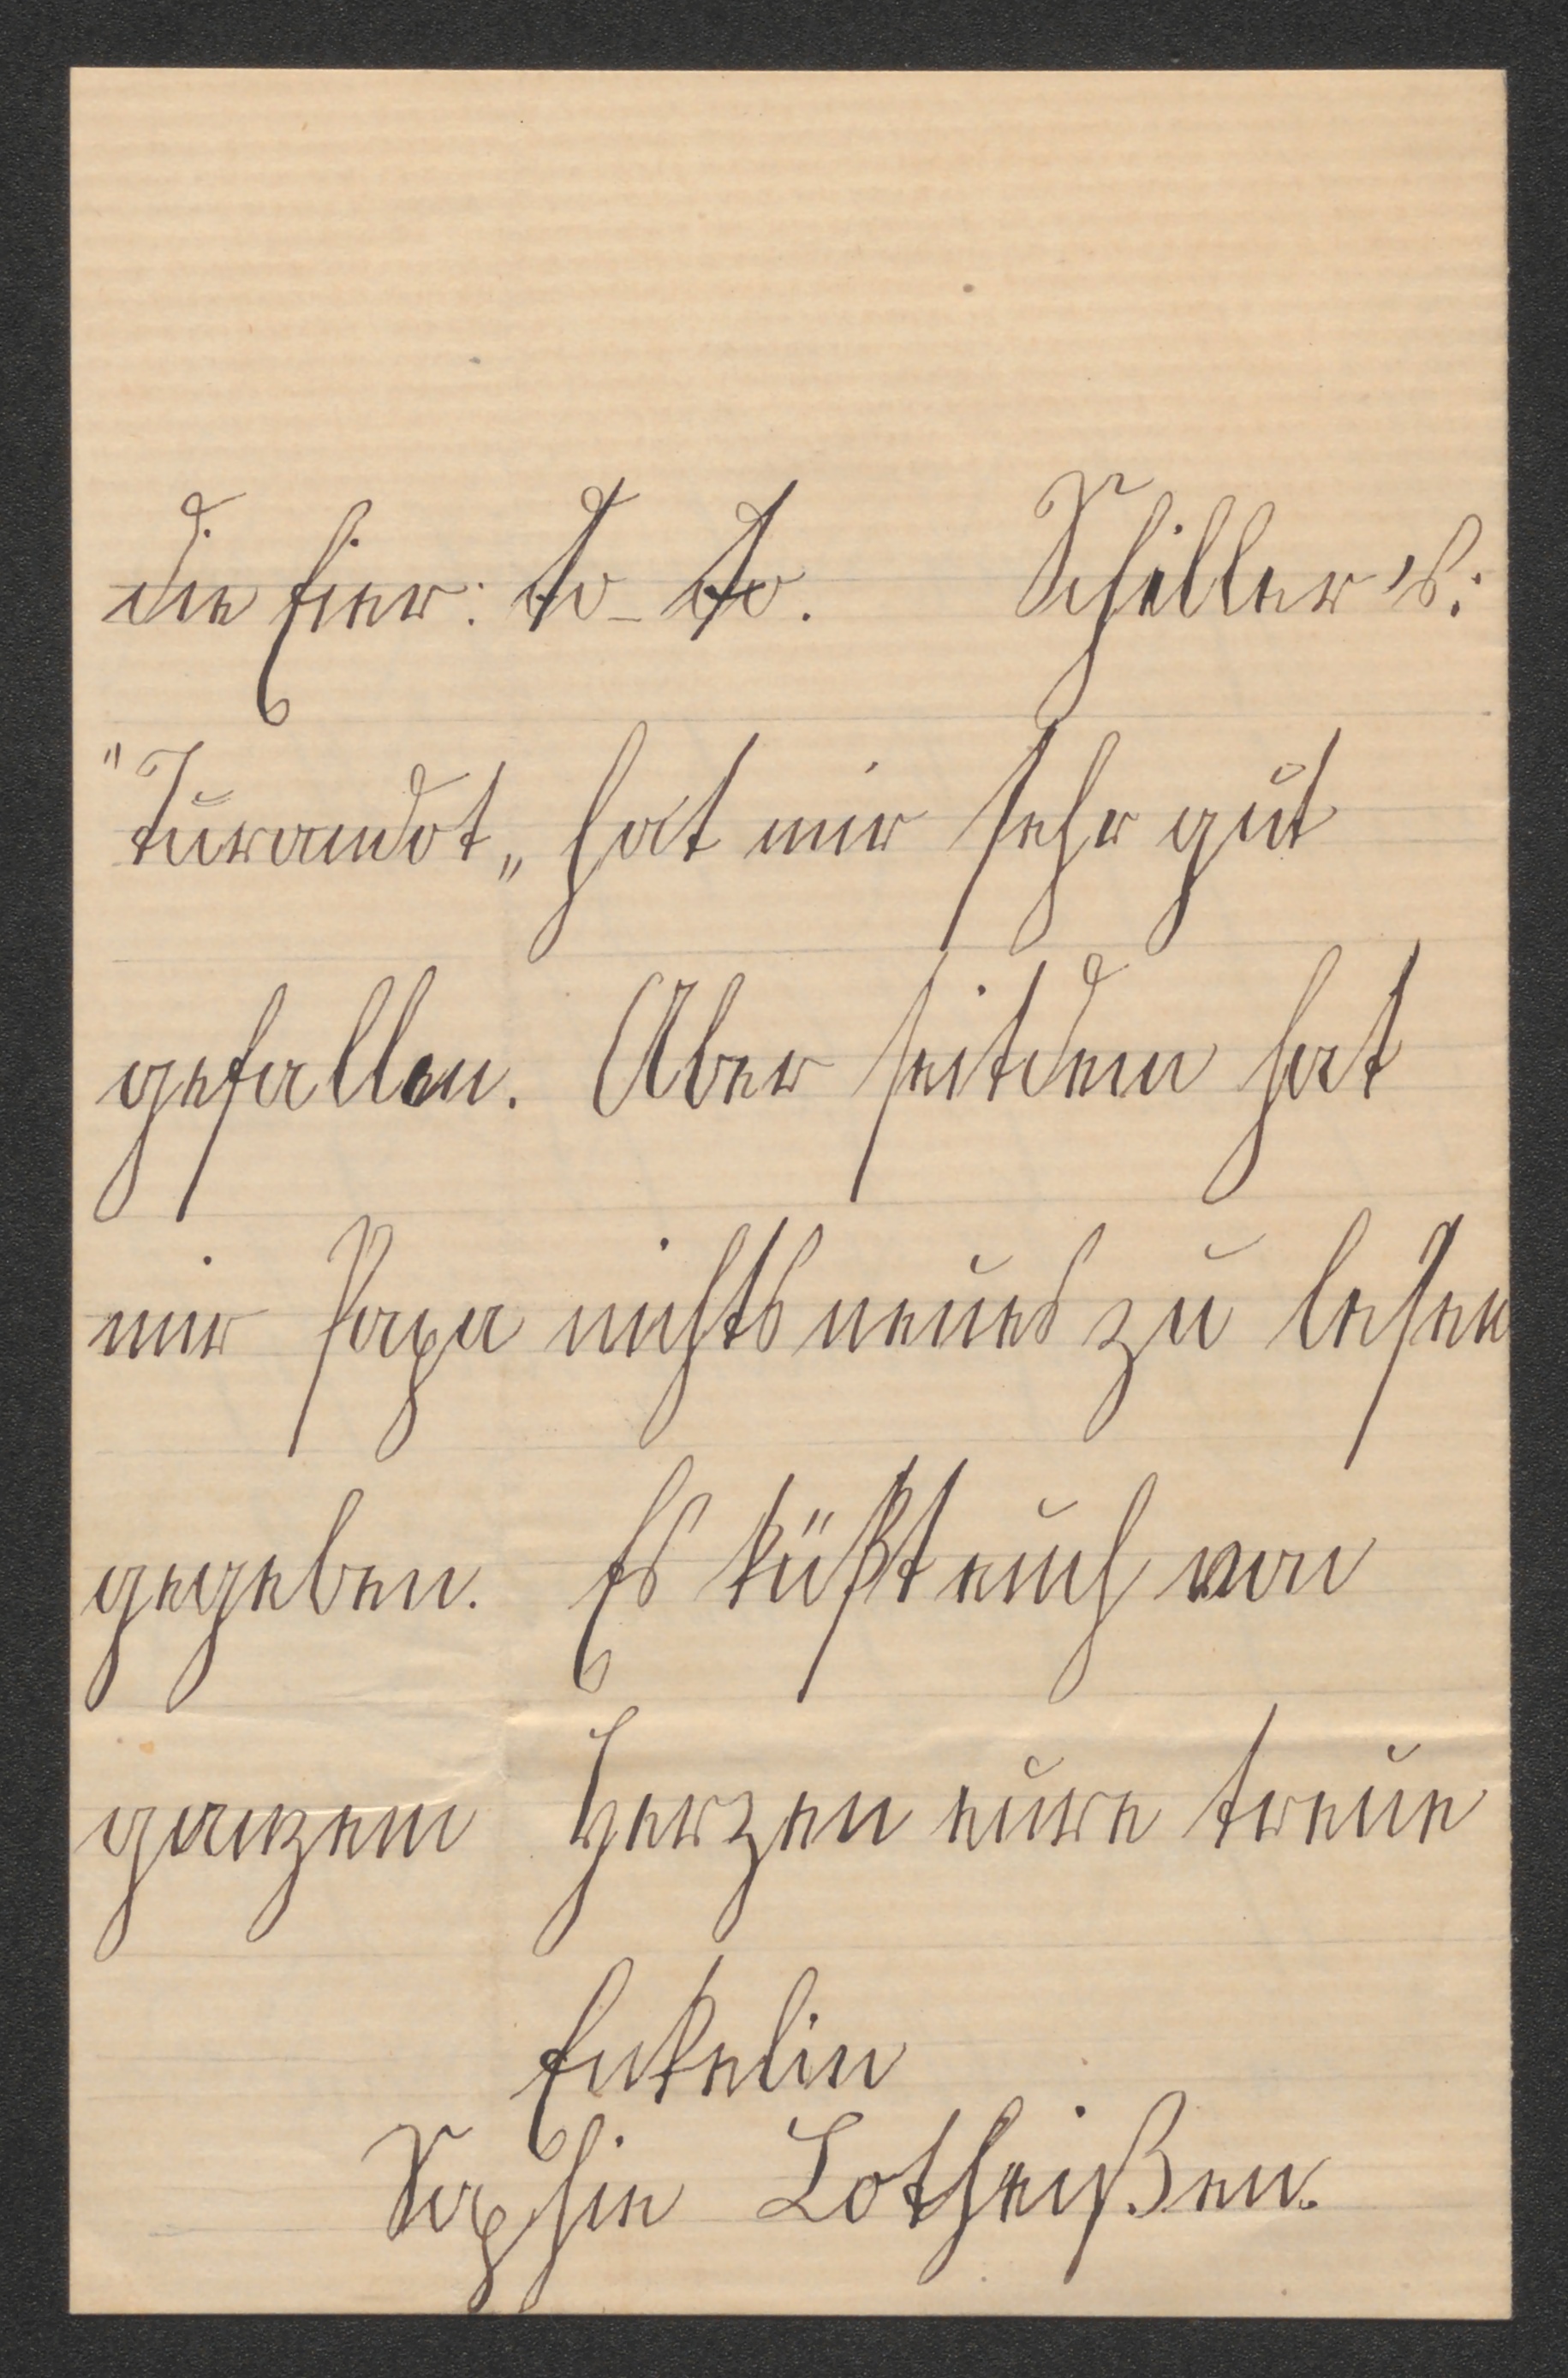 die Eier: do-do. Schiller's:
"Turandot„ hat mir sehr gut
gefallen. Aber seitdem hat
mir Papa nichts neues zu lesen
gegeben. Es küßt euch von
ganzem Herzen eure treue
Enkelin
Sophie Lotheißen.